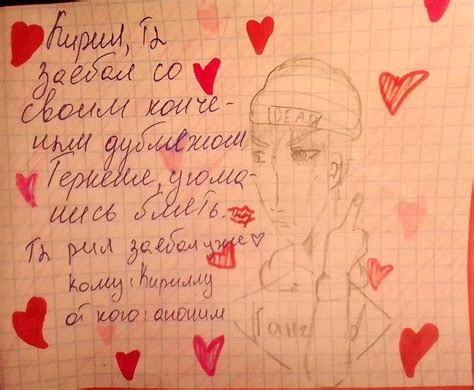 Кирил, ты
заебал со
своим конче-
ным дубляжом
Геркеме, угома-
нись блять.
Ты рил заебал уже
кому: Кириллу
от кого: аноним
DEAD
Ганг